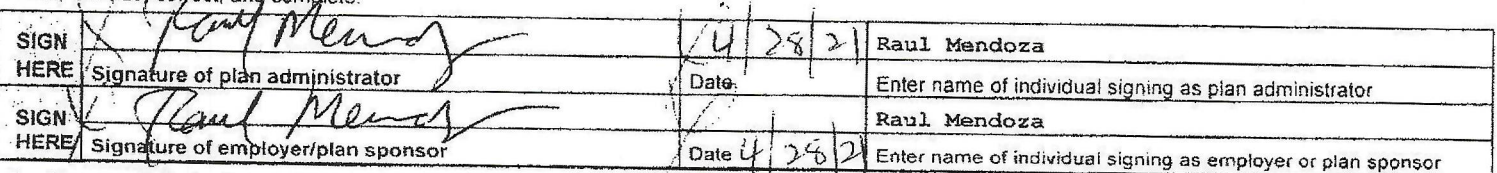 correct, and complete.
SIGN HERE Raul Mendoza 4/28/21 Raul Mendoza
Signature of plan administrator Date Enter name of individual signing as plan administrator
SIGN HERE Raul Mendoza Raul Mendoza
Signature of employer/plan sponsor Date 4/28/2 Enter name of individual signing as employer or plan sponsor